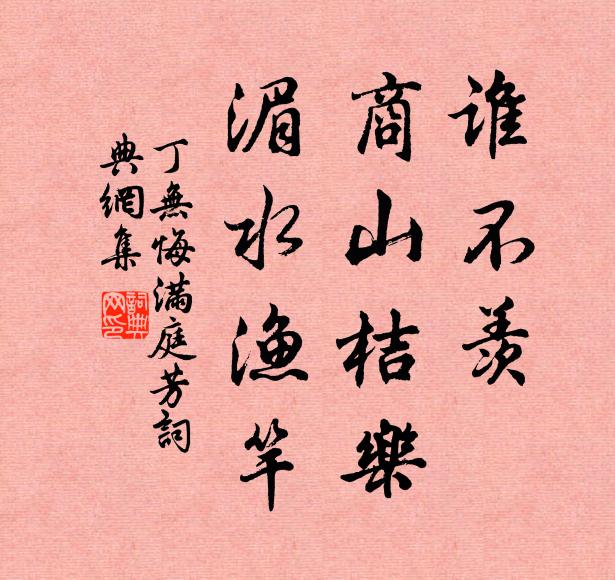 誰不羨
商山桔樂
湄水渔竿
丁無悔滿庭芳詞
典網集
詞典網印